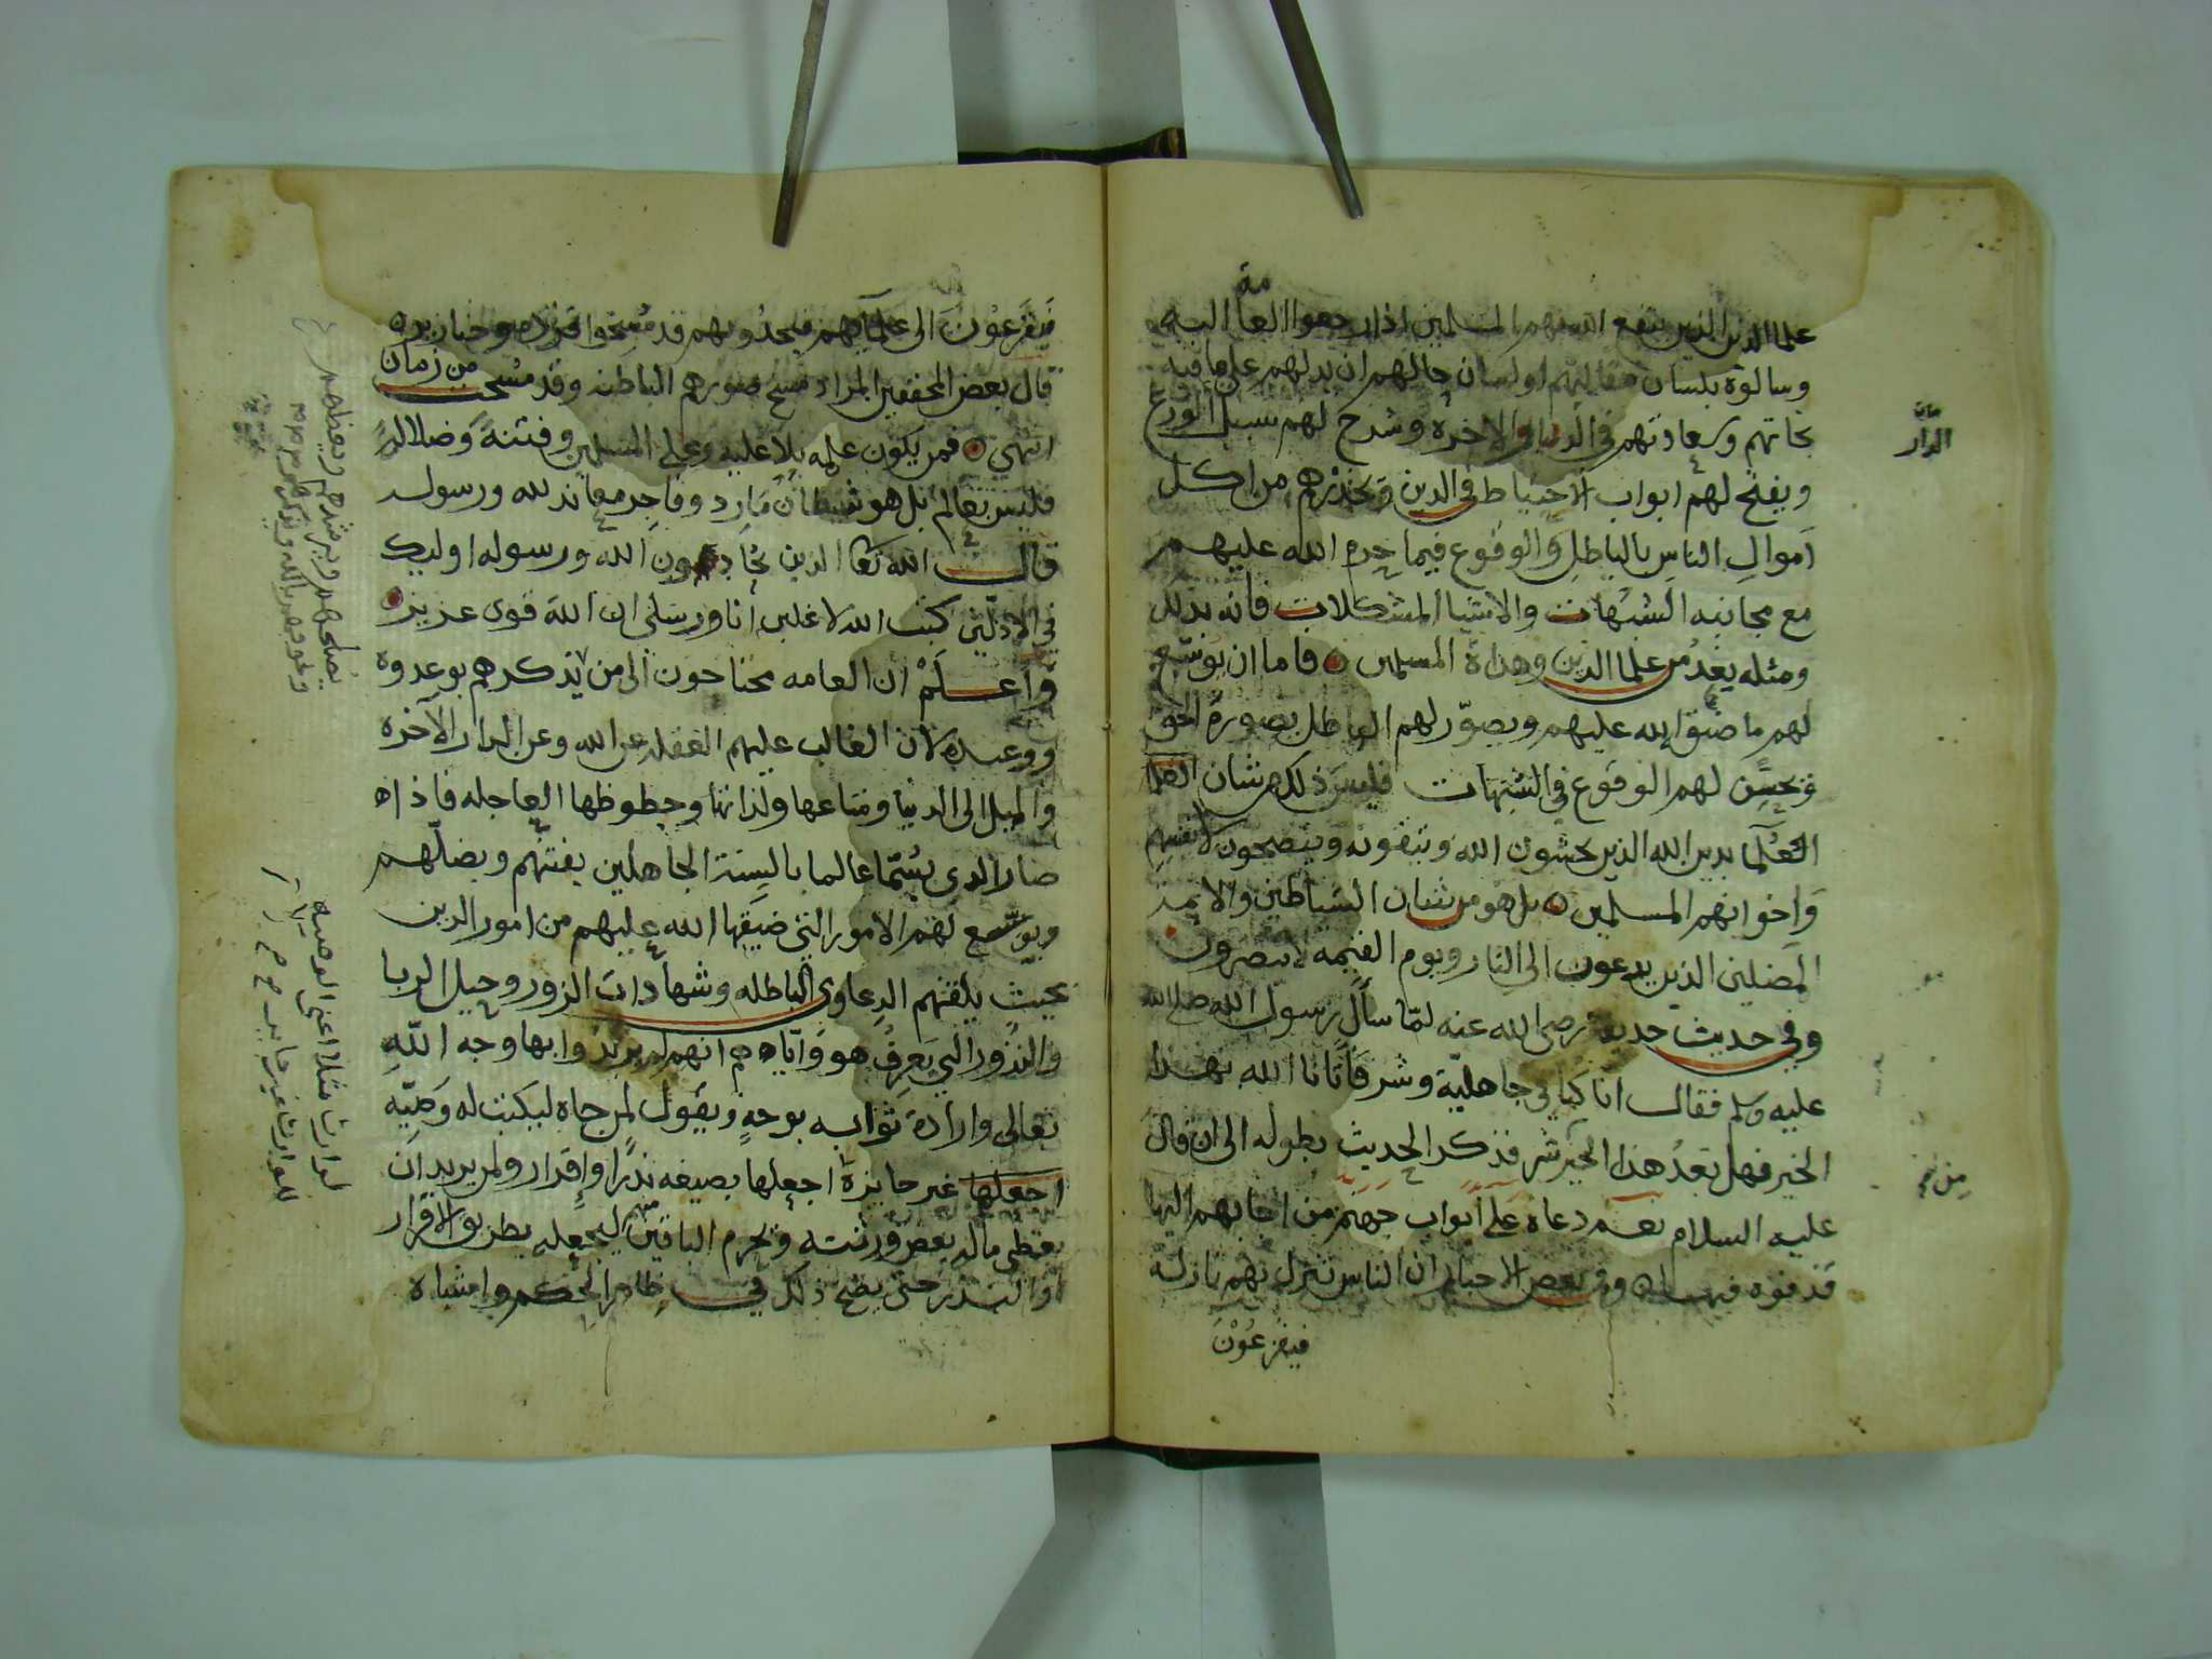 علما الدين الذين ينفع الله بهم المسلمين اذا رجعوا العامة اليه
وسالوه بلسان مقالهم او لسان حالهم ان يدلهم على ما فيه
نجاتهم وسعادتهم في الدنيا والاخره وشرح لهم سبيل الورع
ويفتح لهم ابواب الاحتياط في الدين ويحذرهم من اكل
اموال الناس بالباطل والوقوع فيما حرم الله عليهم
مع مجانبه الشبهات والاشيا المشكلات فانه بذلك
ومثله يعد من علما الدين وهداة المسلمين فاما ان يوسّع
لهم ما ضيق الله عليهم ويصوّر لهم الباطل بصورة الحق
ويحسّن لهم الوقوع في الشبهات فليس ذلك من شان
العُلما بدين الله الذين يخشون الله ويتقونه وينصحون لانفسهم
واخوانهم المسلمين بل هو من شان الشياطين والايمة
المضلين الذين يدعون الى النار ويوم القيمه لا ينصرون
وفي حديث حديفة رضي الله عنه لمّا سأل رسول الله صلى الله
عليه وسلم فقال انا كنا في جاهليّة وشر فاتانا الله بهذا
الخير فهل بعدُ هذا الخير شر فذكر الحديث بطوله الى ان قال
عليه السلام نعم دعاة على ابواب جهنم من اجابهم اليها
قذفوه فيها وفي بعض الاخبار ان الناس تنزل بهم نازلة
فيفزعُوْنَ
الدار
فيفزعُونَ الى علمآئهم فيجدُونهم قد مُسِخوا قردة وخنازير
قال بعض المحققين المراد مسخ صورهم الباطنه وقد مسخت من زمان
انتهى فمن يكون علمه بلا عليه وعلى المسلمين وفتنة وضلالة
فليس بعالم بل هو شيطان مَارد وفاجر معاند لله ورسوله
قال الله تعا الذين يحادون الله ورسوله اوليك
في الاذلّين كتب الله لاغلبن انا ورسلي ان الله قوى عزيز
واعلَمْ ان العامه محتاجون الى من يذكرهم بوعده
ووعيده لان الغالب عليهم الغفله عن الله وعن الدار الآخره
والميل الى الدنيا ومتاعها ولذاتها وحظوظها العاجله فاذا
صار الدي يُسَمّا عالما بالسِنة الجاهلين يفتنهم ويضلّهم
ويوسّع لهم الامور التي ضيّقها الله عليهم من امور الدين
بحيث يلقنهم الدعاوى الباطله وشهادات الزور وحيل الربا
والنذور التي يَعرِفُ هو وايّاهم انهم لم يريدوا بها وجه اللهِ
تعالى وارادة ثوابه بوجهٍ ويقول لمن جاه ليكتب له وصيّه
اجعلها غير جايزة اجعلها بصيغه نذرا واقرار ولمن يريد ان
يعطى ماله بعض ورثته ويحرم الباقين ليجعله بطريق الاقرار
او النذر حتى يصح ذلك في ظاهر الحكم واشباه